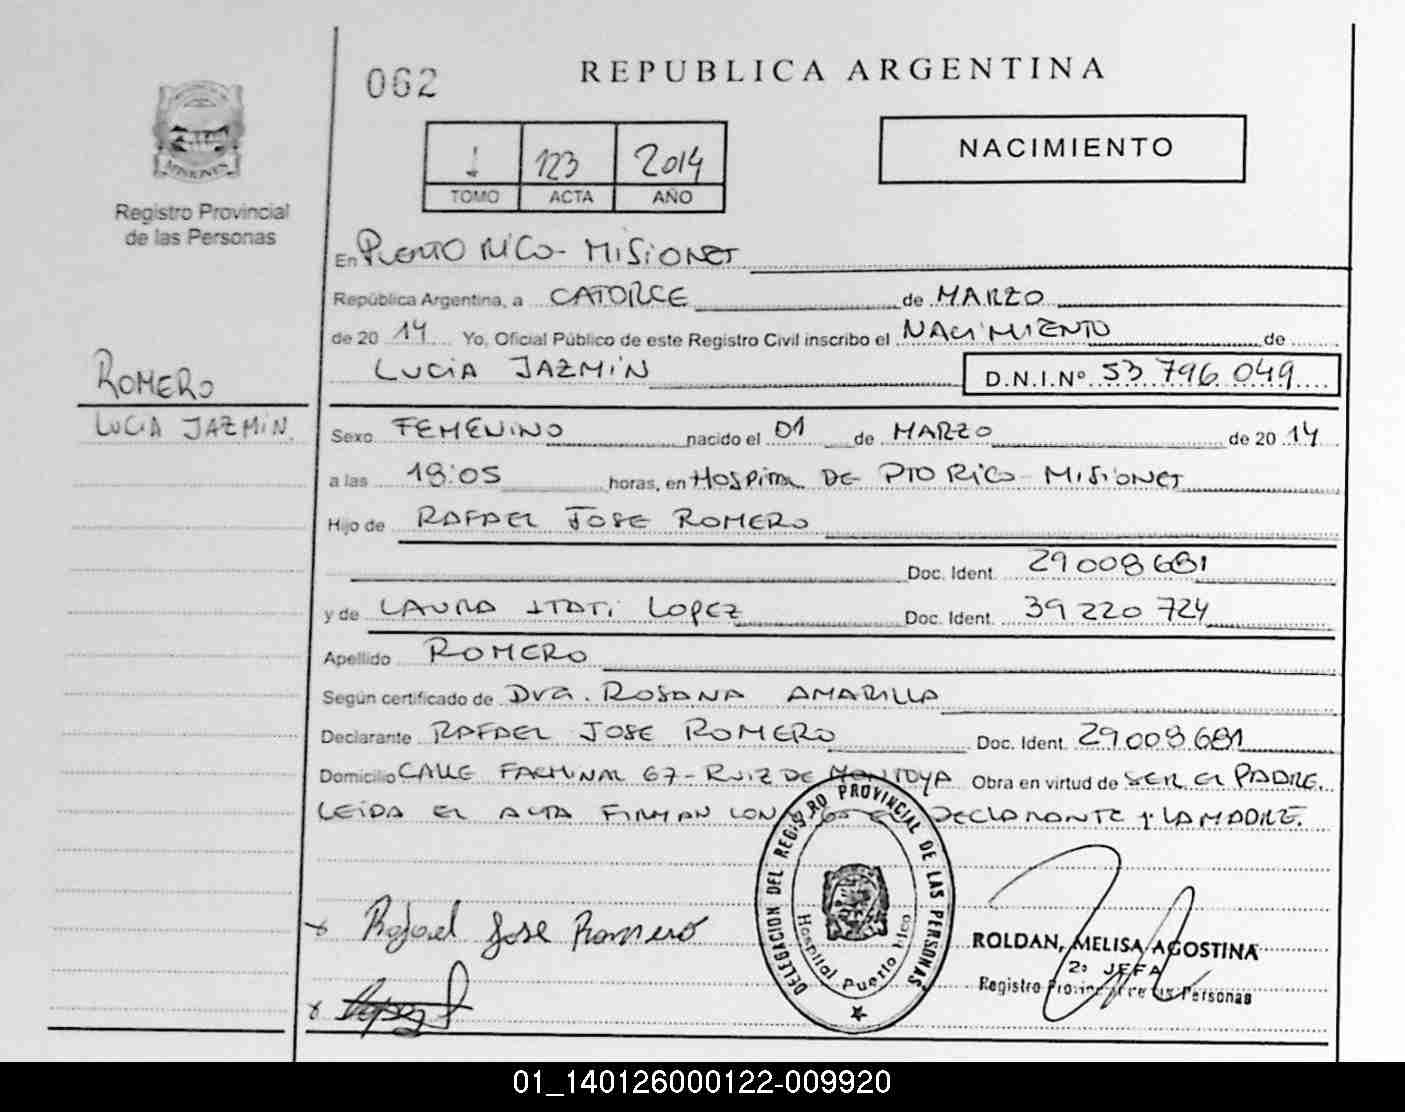 062
REPUBLICA ARGENTINA
NACIMIENTO
1 123 2014
TOMO ACTA AÑO
MISIONES
Registro Provincial
de las Personas
En PUERTO RICO - MISIONES
República Argentina, a CATORCE de MARZO
de 20 14 Yo, Oficial Público de este Registro Civil inscribo el NACIMIENTO de
LUCIA JAZMIN D.N.I.Nº 53 796 049
ROMERO
LUCIA JAZMIN
Sexo FEMENINO nacido el 01 de MARZO de 20 14
a las 19:05 horas, en HOSPITAL DE PTO RICO - MISIONES
Hijo de RAFAEL JOSE ROMERO
Doc. Ident. 29 008 681
y de LAURA ITATI LOPEZ Doc. Ident. 39 220 724
Apellido ROMERO
Según certificado de Dra. ROSANA AMARILLA
Declarante RAFAEL JOSE ROMERO Doc. Ident. 29 008 681
Domicilio CALLE FACHINAL 67 - RUIZ DE MONTOYA Obra en virtud de SER EL PADRE.
LEIDA EL ACTA FIRMAN DECLARANTE y LA MADRE.
DELEGACION DEL REGISTRO PROVINCIAL DE LAS PERSONAS
Hospital Puerto Rico
Rafael Jose Romero
ROLDAN, MELISA AGOSTINA
2º JEFA
Registro Provincial de las Personas
01_140126000122-009920